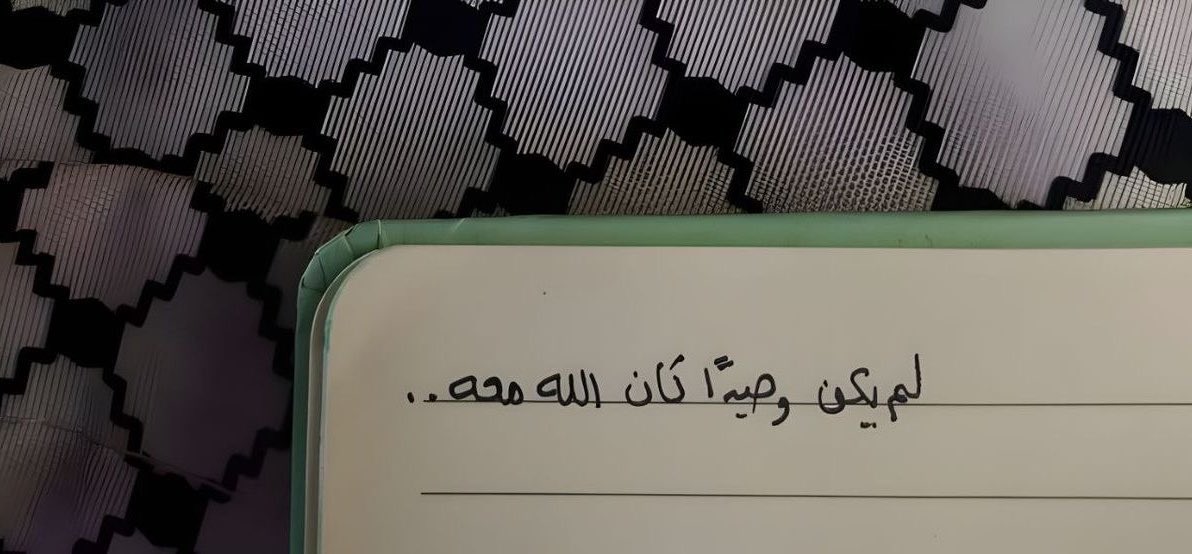 لم يكن وحيدًا كَان الله معه..